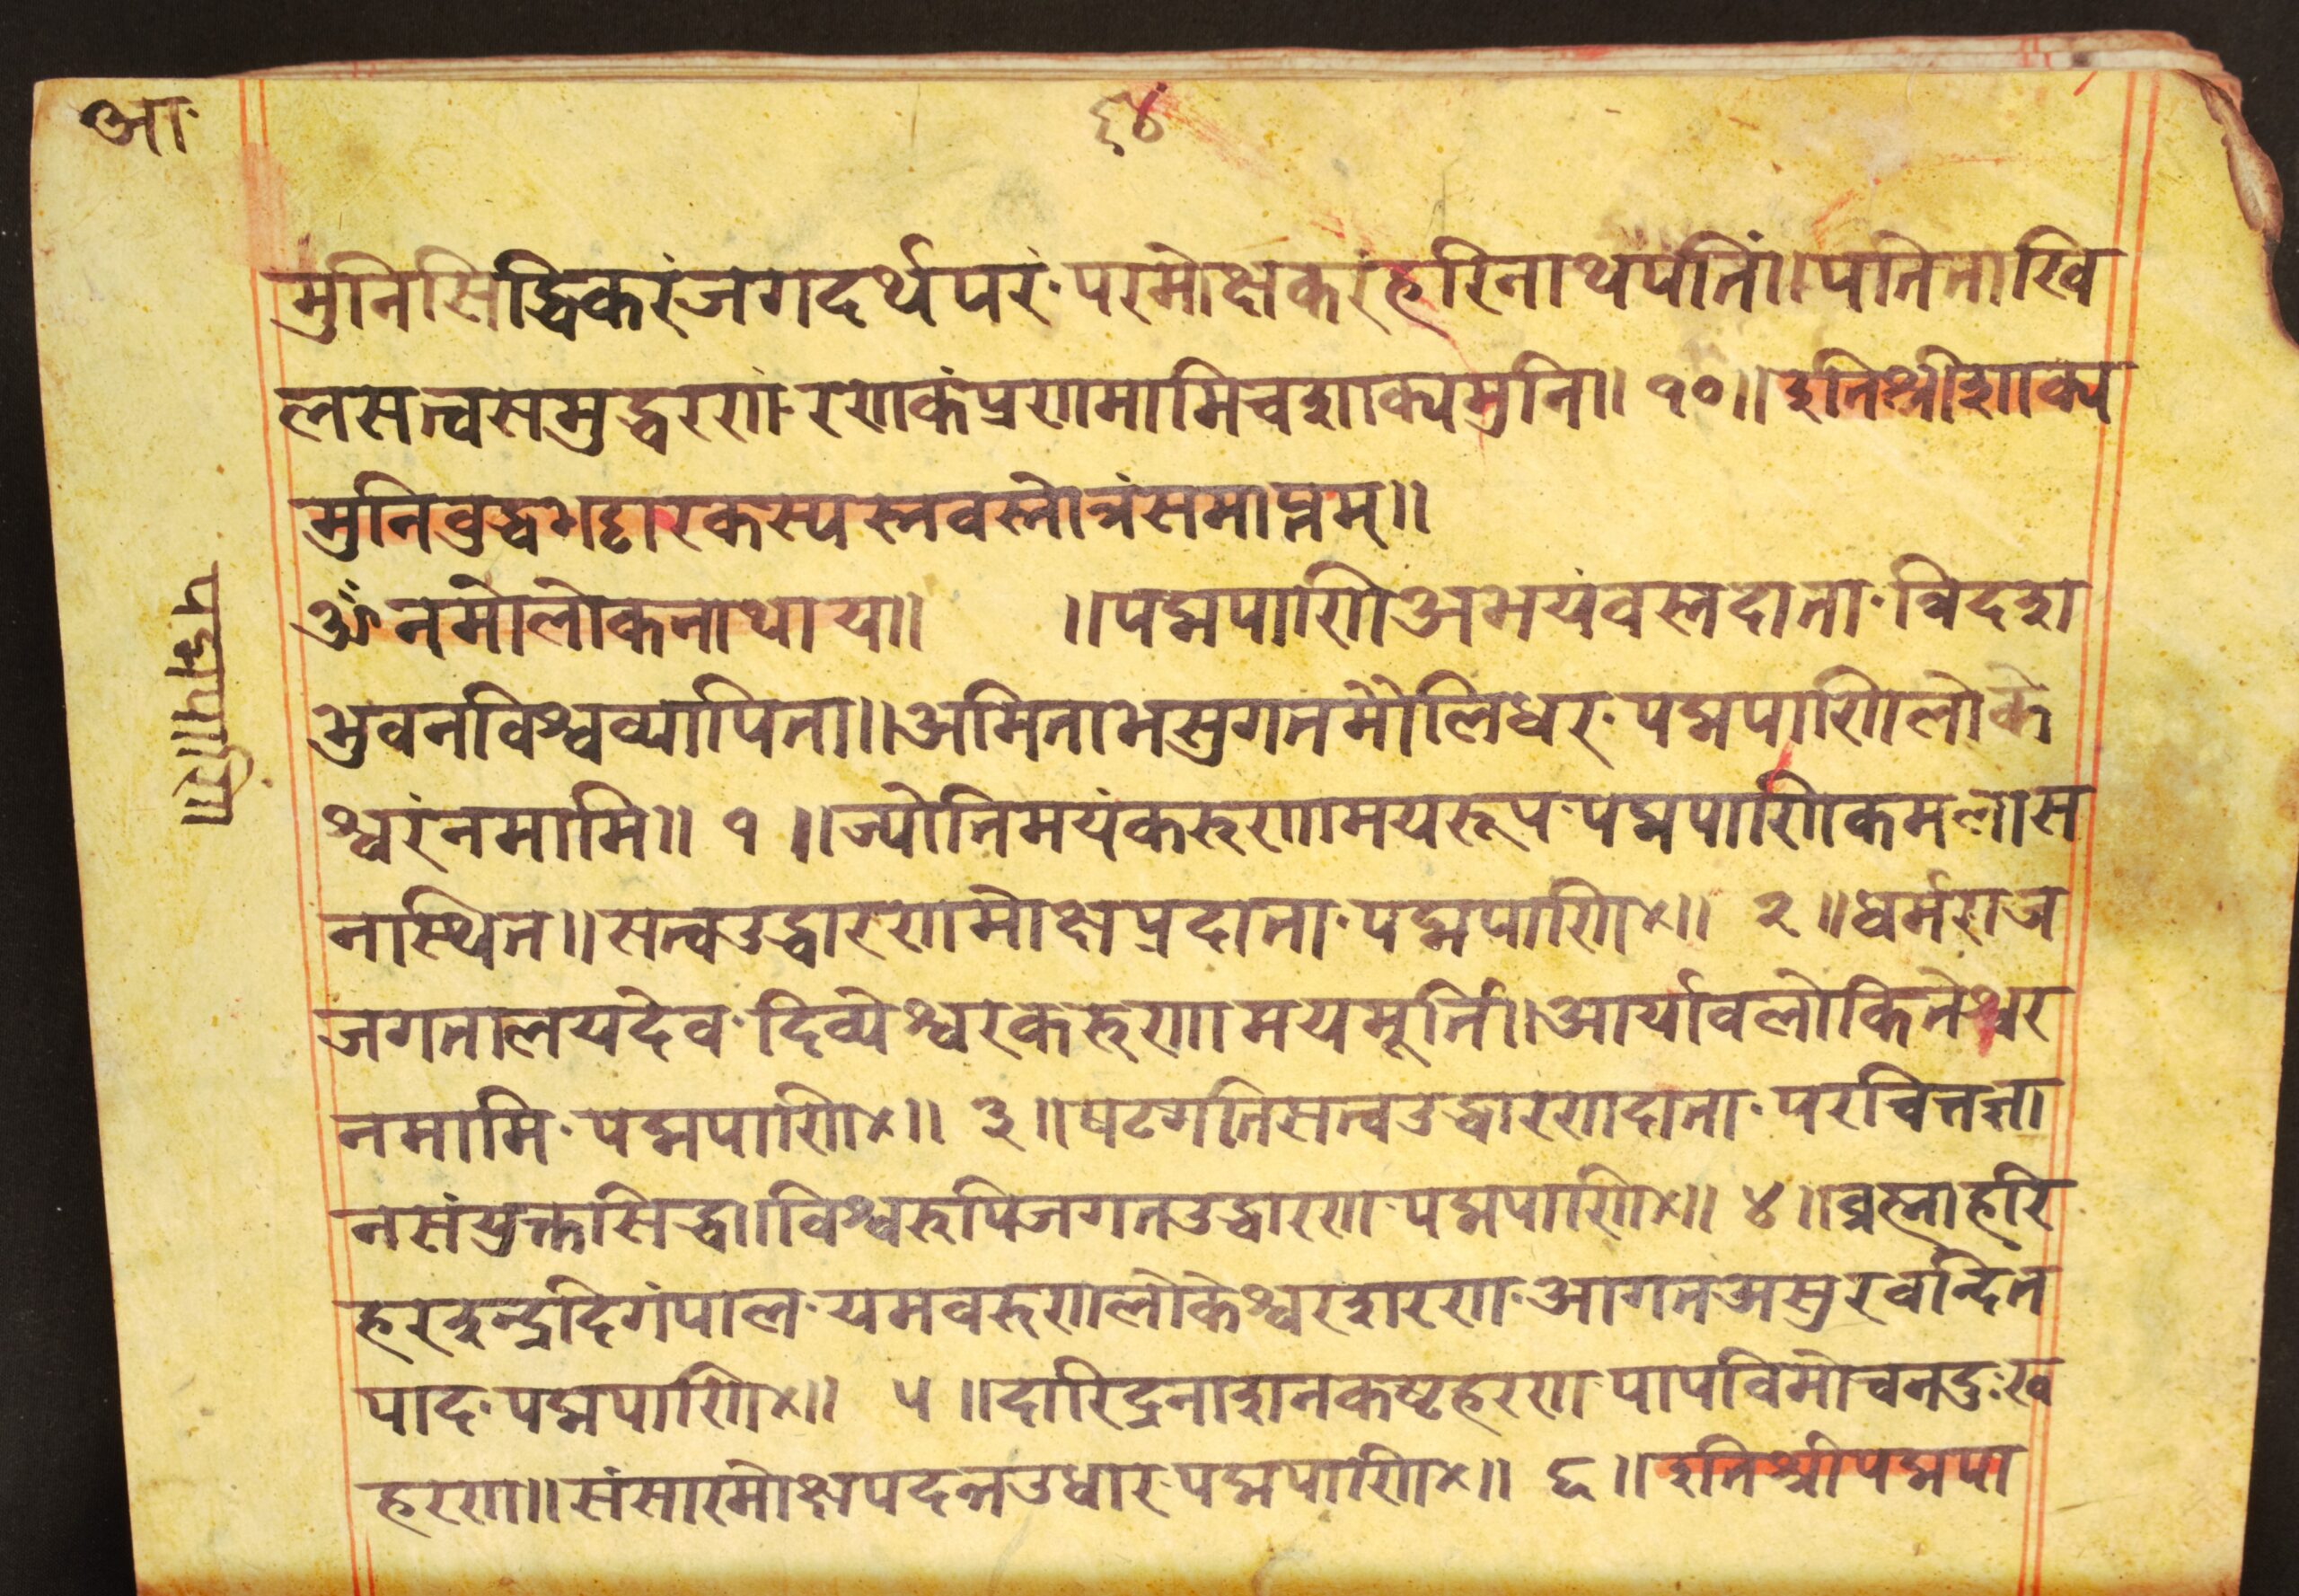 आ·
६४
मुनिसिद्धिकरंजगदर्थपरं·परमोक्षकरंहरिनाथपतिं॥पतिताखि
लसत्त्वसमुद्धरणं·रणेकंप्रणमामिचशाक्यमुनि॥ १०॥इतिश्रीशाक्य
मुनिवुद्धभट्टारकस्यस्तवस्तोत्रंसमाप्तम्॥
ॐनमोलोकनाथाय॥ ॥पद्मपाणिअभयंवस्तदाता·त्रिदश
भुवनविश्वव्यापिता॥अमिताभसुगतमौलिधर·पद्मपाणिलोके
श्वरंनमामि॥ १ ॥ज्योतिमयंकरुणामयरूप·पद्मपाणिकमलास
नास्थित॥सत्वउद्धारणेमोक्षप्रदाता·पद्मपाणि×॥ २ ॥धर्मराज
जगतालयदेव·दिव्येश्वरकरुणामयमूर्तिं॥आर्यावलोकितेश्वर
नमामि·पद्मपाणि×॥ ३ ॥षटगतिसत्वउद्धारणदाता·परचित्तज्ञा
नसंयुक्तसिद्ध॥विश्वरुपिजगतउद्धारण·पद्मपाणि×॥ ४ ॥व्रह्माहरि
हरइन्द्रदिगंपाल·यमवरुणलोकेश्वरशरण·आगतअसुरवन्दित
पाद·पद्मपाणि×॥ ५ ॥दारिद्रनाशनकष्टहरण·पापविमोचनदुःख
हरण॥संसारमोक्षपदत्तउधार·पद्मपाणि×॥ ६ ॥इतिश्रीपद्मपा
पद्मपाणिं